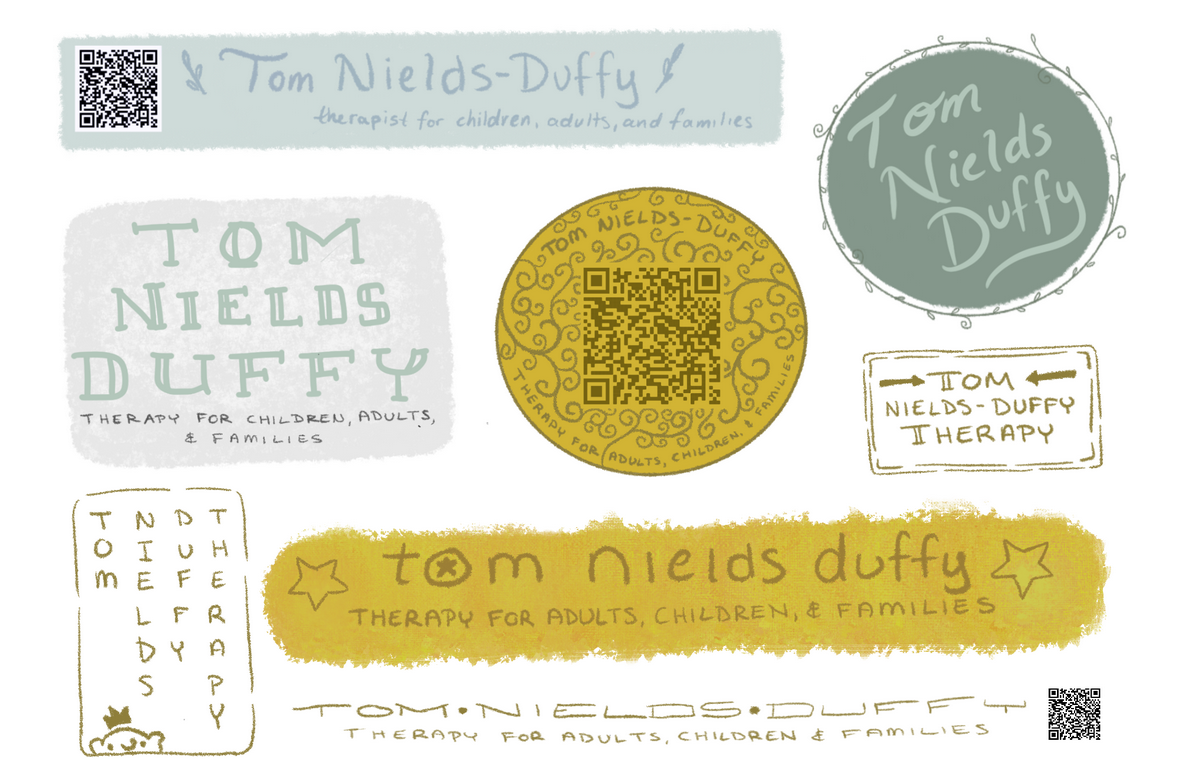 Tom Nields-Duffy
therapist for children, adults, and families
Tom
Nields
Duffy
TOM
NIELDS
DUFFY
THERAPY FOR CHILDREN, ADULTS,
& FAMILIES
TOM NIELDS-DUFFY
THERAPY FOR ADULTS, CHILDREN, & FAMILIES
TOM
NIELDS-DUFFY
THERAPY
TOM
NIELDS
DUFFY
THERAPY
tom nields duffy
THERAPY FOR ADULTS, CHILDREN, & FAMILIES
TOM•NIELDS•DUFFY
THERAPY FOR ADULTS, CHILDREN & FAMILIES